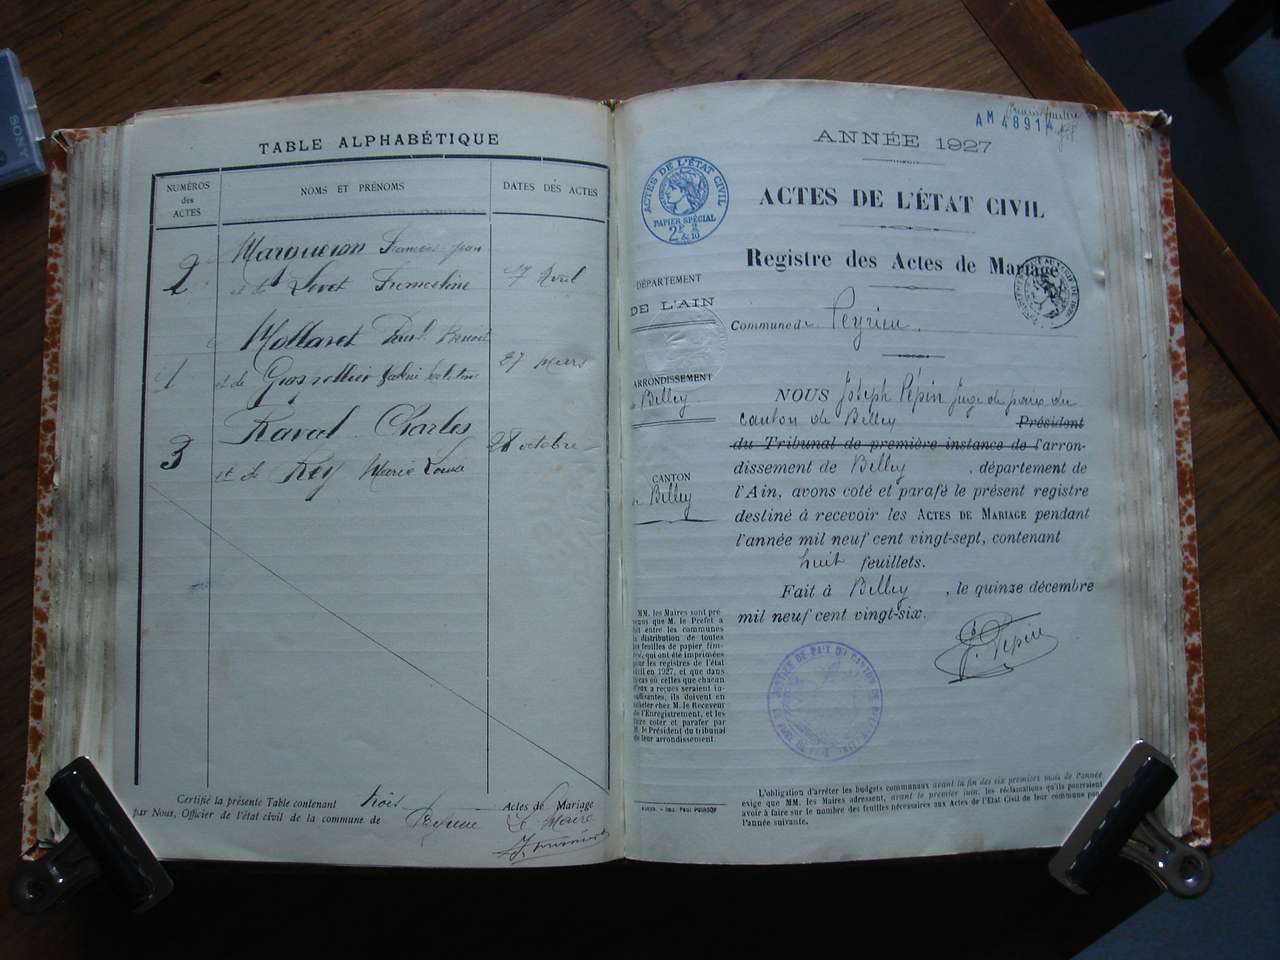 TABLE ALPHABÉTIQUE
NUMÉROS
des
ACTES
NOMS ET PRÉNOMS
DATES DES ACTES
2
et de Franceline
Avril
1
Mollaret Paul Benoit
et de
27 Mars
3
Raval Charles
28 octobre
et de Rey Marie Louise
Certifié la présente Table contenant trois Actes de Mariage
par Nous, Officier de l'état civil de la commune de Peyrieu Le Maire
AM 48914
ANNÉE 1927
ACTES DE L'ÉTAT CIVIL
PAPIER SPÉCIAL
2F
& 2/10
ACTES DE L'ÉTAT CIVIL
Registre des Actes de Mariage
Commune de Peyrieu
DÉPARTEMENT
DE L'AIN
ARRONDISSEMENT
Belley
CANTON
Belley
NOUS Joseph Pépin Juge de paix du
Canton de Belley Président
du Tribunal de première instance de l'arron-
dissement de Belley, département de
l'Ain, avons coté et parafé le présent registre
destiné à recevoir les ACTES DE MARIAGE pendant
l'année mil neuf cent vingt-sept, contenant
huit feuillets.
Fait à Belley, le quinze décembre
mil neuf cent vingt-six.
J. Pépin
MM. les Maires sont pré
venus que M. le Préfet a
fait entre les communes
la distribution de toutes
les feuilles de papier tim-
bré, qui ont été imprimées
pour les registres de l'état
civil en 1927, et que dans
le cas où celles que chacun
d'eux a reçues seraient in-
suffisantes, ils doivent en
acheter chez M. le Receveur
de l'Enregistrement, et les
faire coter et parafer par
M. le Président du tribunal
de leur arrondissement.
IMP. PAUL
L'obligation d'arrêter les budgets communaux avant la fin des six premiers mois de l'année
exige que MM. les Maires adressent, avant le premier juin, les réclamations qu'ils pourraient
avoir à faire sur le nombre des feuilles nécessaires aux Actes de l'Etat Civil de leur commune pour
l'année suivante.
SONY